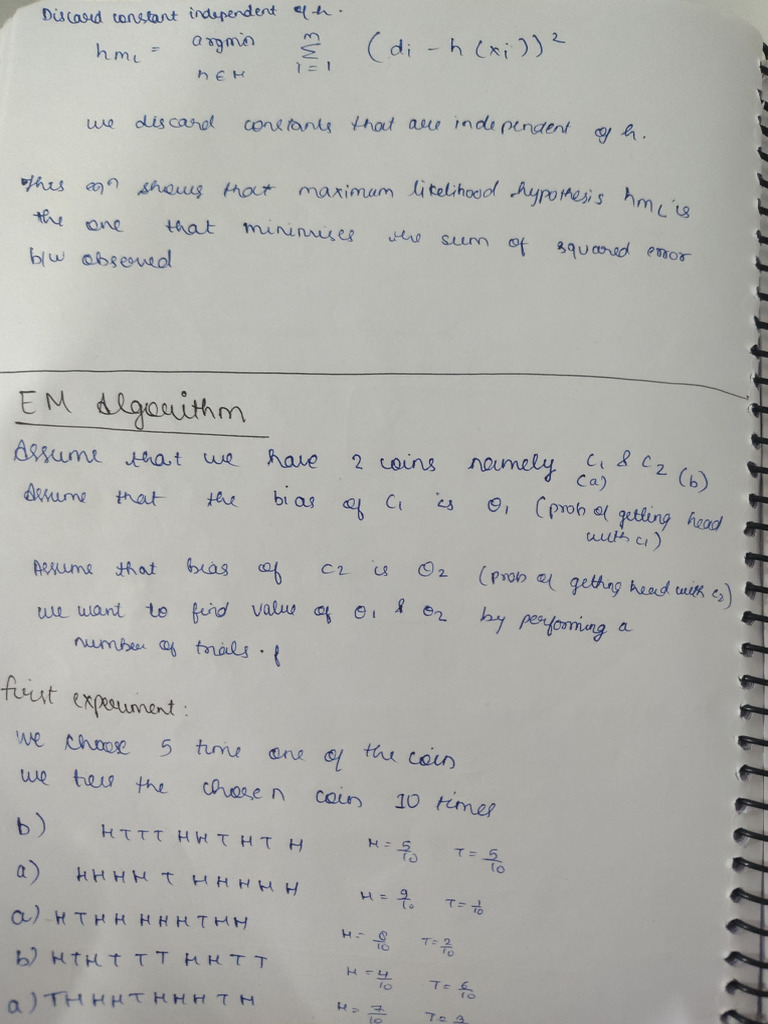 Discard constant independent of h.
hmL = argmin h∈H m Σ i=1 (di - h(xi))²
we discard constants that are independent of h.
This eqn shows that maximum likelihood hypothesis hmL is
the one that minimises the sum of squared error
b/w observed
EM Algorithm
Assume that we have 2 coins namely C1 & C2
(a) (b)
Assume that the bias of C1 is θ1 (prob of getting head
with c1)
Assume that bias of C2 is θ2 (prob of getting head with c2)
we want to find value of θ1 & θ2 by performing a
number of trials.
first experiment:
we choose 5 time one of the coin
we toss the chosen coin 10 times
b) HTTTHHTHTH H=5/10 T=5/10
a) HHHHTHHHHH H=9/10 T=1/10
a) HTHHHHHTHH H=8/10 T=2/10
b) HTHTTTHHTT H=4/10 T=6/10
a) THHHTHHHTH H=7/10 T=3